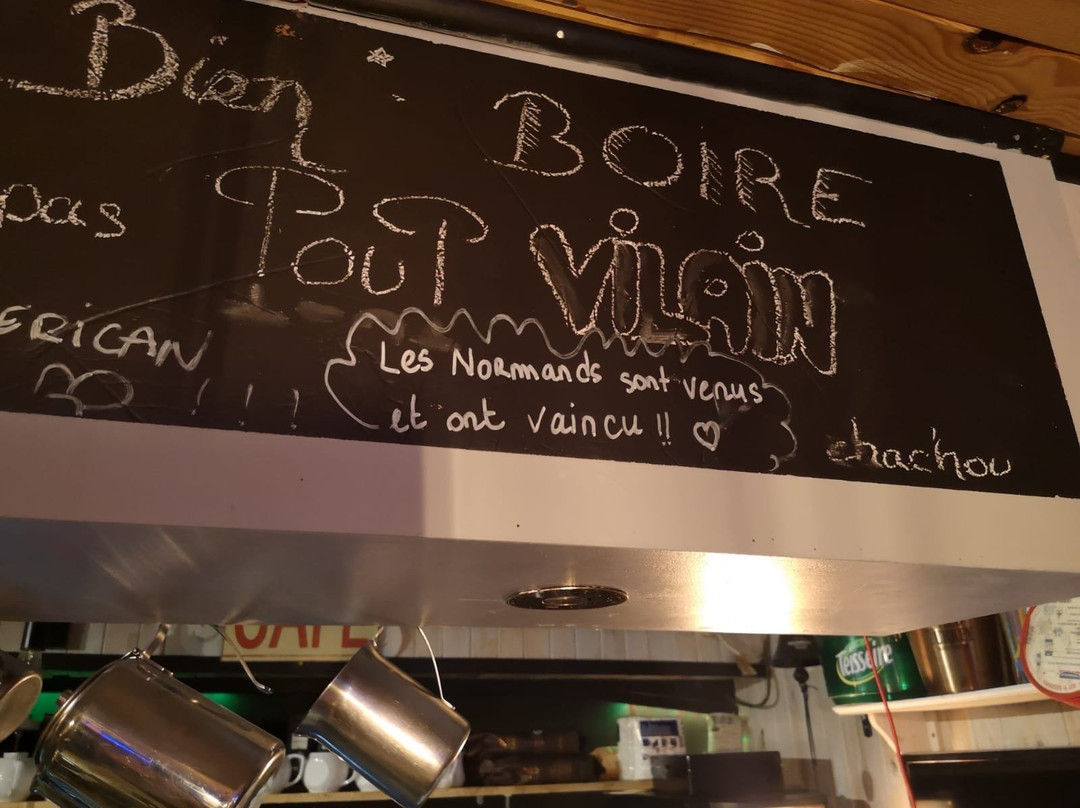 Bien BOIRE
pas Tout VILAIN
ERICAN !!!
Les Normands sont venus
et ont vaincu !!
chachou
CAFE
Teisseire